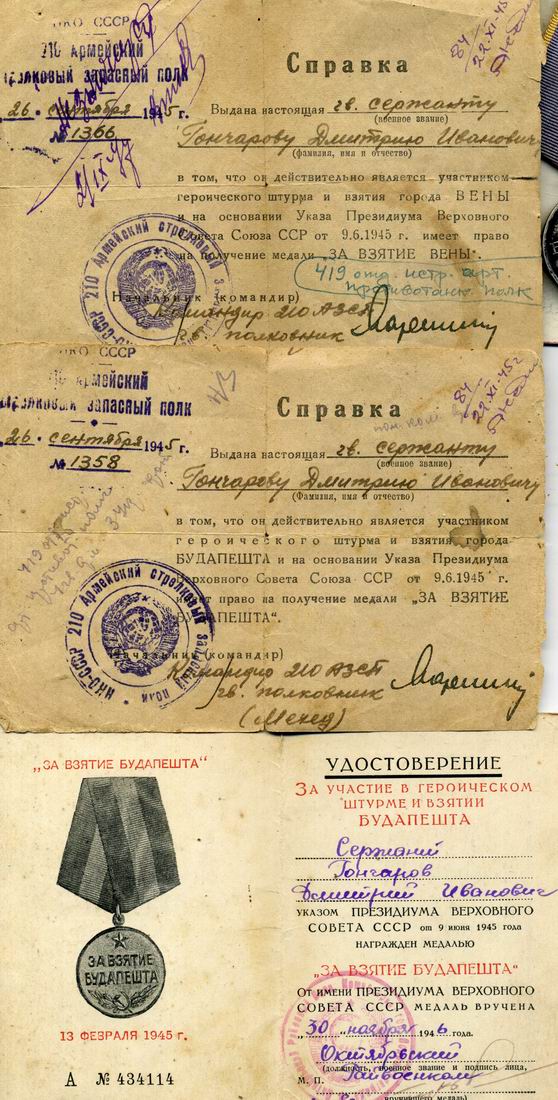 НКО СССР
210 Армейский
стрелковый запасный полк
26 · сентября 1945 г.
№ 1366
84
22.XI.45
Справка
Выдана настоящая гв. сержанту
(военное звание)
Гончарову Дмитрию Ивановичу
(фамилия, имя и отчество)
в том, что он действительно является участником
героического штурма и взятия города ВЕНЫ
и на основании Указа Президиума Верховного
Совета Союза ССР от 9.6.1945 г. имеет право
на получение медали „ЗА ВЗЯТИЕ ВЕНЫ".
419 отд. истр. арт.
противотанк полк
Начальник (командир)
Командир 210 АЗСП
гв. полковник
НКО СССР
210 Армейский
стрелковый запасный полк
26 · сентября 1945 г.
№ 1358
84
22.XI.45 г
Справка
Выдана настоящая гв. сержанту
(военное звание)
Гончарову Дмитрию Ивановичу
(Фамилия, имя и отчество)
в том, что он действительно является участником
героического штурма и взятия города
БУДАПЕШТА и на основании Указа Президиума
Верховного Совета Союза ССР от 9.6.1945 г.
имеет право на получение медали „ЗА ВЗЯТИЕ
БУДАПЕШТА".
НКО-СССР 210 Армейский стрелковый запасный полк
Начальник (командир)
Командир 210 АЗСП
гв. полковник
„ЗА ВЗЯТИЕ БУДАПЕШТА"
ЗА ВЗЯТИЕ
БУДАПЕШТА
13 ФЕВРАЛЯ 1945 г.
А № 434114
УДОСТОВЕРЕНИЕ
ЗА УЧАСТИЕ В ГЕРОИЧЕСКОМ
ШТУРМЕ И ВЗЯТИИ
БУДАПЕШТА
Сержант
Гончаров
Дмитрий Иванович
УКАЗОМ ПРЕЗИДИУМА ВЕРХОВНОГО
СОВЕТА СССР от 9 июня 1945 года
НАГРАЖДЕН МЕДАЛЬЮ
„ЗА ВЗЯТИЕ БУДАПЕШТА"
ОТ ИМЕНИ ПРЕЗИДИУМА ВЕРХОВНОГО
СОВЕТА СССР МЕДАЛЬ ВРУЧЕНА
„30" ноября 1946 года.
Октябрьский
(должность, военное звание и подпись лица,
М. П. Райвоенком
вручившего медаль)